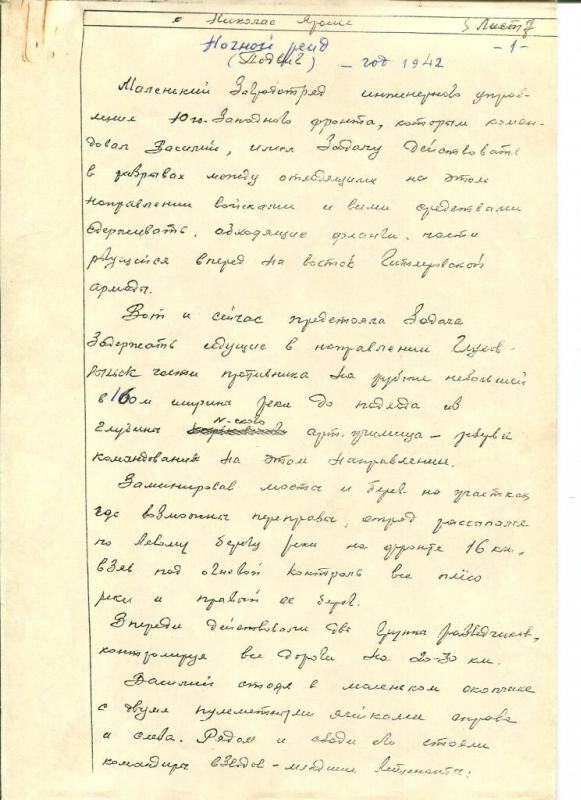 Николас Яроше Лист 7
Ночной рейд -1-
(Подвиг) - год 1942
Маленький Завродотряд инженерного управ-
ления Юго-Западного фронта, которым коман-
довал Василий, имел задачу действовать
в разрывах между отходящими на этом
направлении войсками и всеми средствами
сдерживать, обходящие фланги, части
рвущейся вперед на восток Гитлеровской
армады.
Вот и сейчас предстояла задача
задержать идущие в направлении
части противника на рубеже небольшой
в 160м ширины реки до подхода из
глубины N-ского арт. училища - резерва
командования на этом направлении.
Заминировав мосты и берег на участках,
где возможны переправы, отряд рассыпался
по левому берегу реки на фронте 16 км.
взяв под огневой контроль все плёсо
реки и правый ее берег.
Впереди действовали две группы разведчиков,
контролируя все дороги на 20-30 км.
Василий стоял в маленьком окопчике
с двумя пулеметными ячейками справа
и слева. Рядом и сзади его стояли
командиры взводов - младшие лейтенанты.